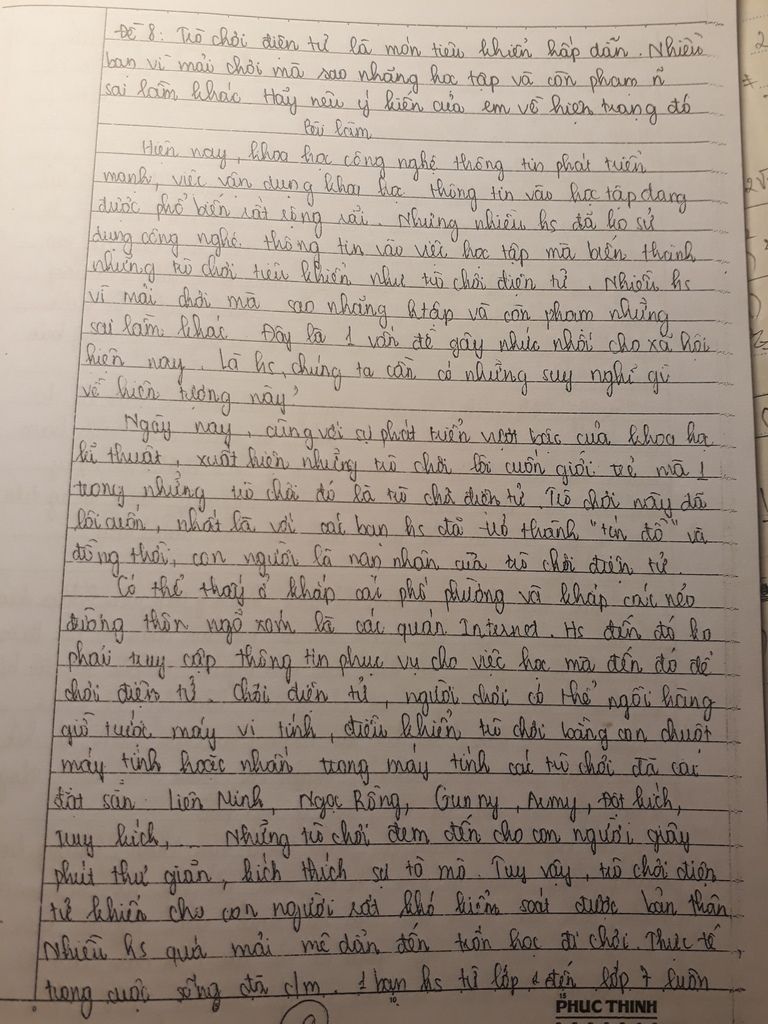 Đề 8: Trò chơi điện tử là món tiêu khiển hấp dẫn. Nhiều
bạn vì mải chơi mà sao nhãng học tập và còn phạm ~
sai lầm khác. Hãy nêu ý kiến của em về hiện trạng đó
Bài làm
Hiện nay, khoa học công nghệ thông tin phát triển
mạnh, việc vận dụng khoa học thông tin vào học tập đang
được phổ biến rất rộng rãi. Nhưng nhiều hs đã ko sử
dụng công nghệ thông tin vào việc học tập mà biến thành
những trò chơi tiêu khiển như trò chơi điện tử. Nhiều hs
vì mải chơi mà sao nhãng htập và còn phạm những
sai lầm khác. Đây là 1 vấn đề gây nhức nhối cho xã hội
hiện nay. Là hs, chúng ta cần có những suy nghĩ gì
về hiện tượng này?
Ngày nay, cùng với sự phát triển vượt bậc của khoa học
kĩ thuật, xuất hiện những trò chơi lôi cuốn giới trẻ mà 1
trong những trò chơi đó là trò chơi điện tử. Trò chơi này đã
lôi cuốn, nhất là với các bạn hs đã trở thành "tín đồ" và
đồng thời, con người là nạn nhân của trò chơi điện tử.
Có thể thấy ở khắp các phố phường và khắp các nẻo
đường thôn ngõ xóm là các quán Internet. Hs đến đó ko
phải truy cập thông tin phục vụ cho việc học mà đến đó để
chơi điện tử. Chơi điện tử, người chơi có thể ngồi hàng
giờ trước máy vi tính, điều khiển trò chơi bằng con chuột
máy tính hoặc nhấn trong máy tính các trò chơi đã cài
đặt sẵn: Liên Minh, Ngọc Rồng, Gunny, Army, Đột kích,
truy kích,... Những trò chơi đem đến cho con người giây
phút thư giãn, kích thích sự tò mò. Tuy vậy, trò chơi điện
tử khiến cho con người rất khó kiểm soát được bản thân.
Nhiều hs quá mải mê dẫn đến trốn học đi chơi. Thực tế
trong cuộc sống đã c/m. 1 bạn hs từ lớp 1 đến lớp 7 luôn
PHUC THINH